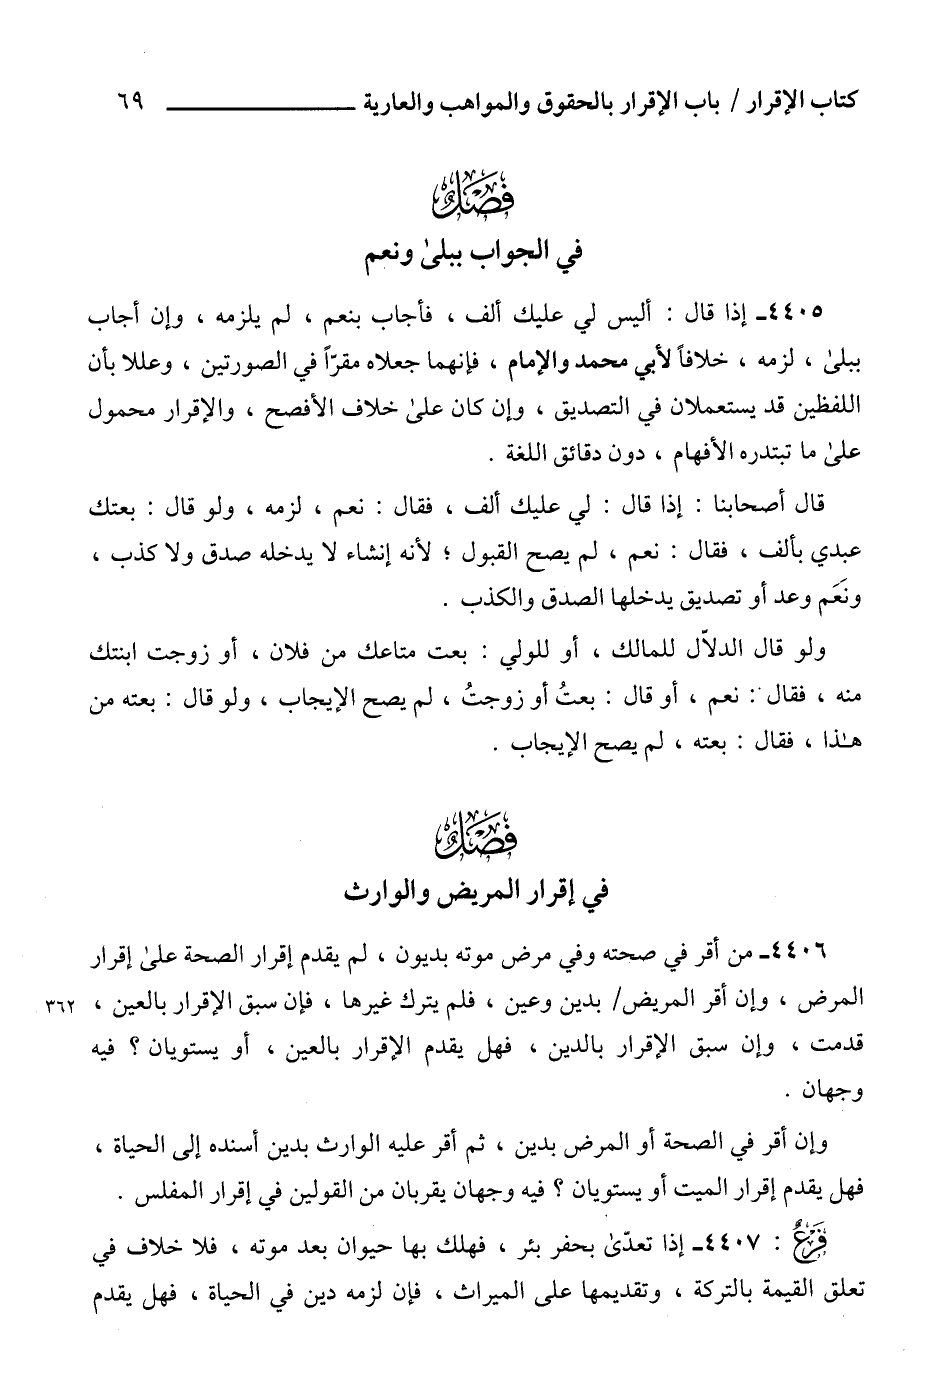 كتاب الإقرار / باب الإقرار بالحقوق والمواهب والعارية ــــــــــــــــ ٦٩
فصل
في الجواب ببلىٰ ونعم
٤٤٠٥ـ إذا قال : أليس لي عليك ألف ، فأجاب بنعم ، لم يلزمه ، وإن أجاب
ببلىٰ ، لزمه ، خلافاً لأبي محمد والإمام ، فإنهما جعلاه مقرّاً في الصورتين ، وعللا بأن
اللفظين قد يستعملان في التصديق ، وإن كان علىٰ خلاف الأفصح ، والإقرار محمول
علىٰ ما تبتدره الأفهام ، دون دقائق اللغة .
قال أصحابنا : إذا قال : لي عليك ألف ، فقال : نعم ، لزمه ، ولو قال : بعتك
عبدي بألف ، فقال : نعم ، لم يصح القبول ؛ لأنه إنشاء لا يدخله صدق ولا كذب ،
ونَعَم وعد أو تصديق يدخلها الصدق والكذب .
ولو قال الدلاّل للمالك ، أو للولي : بعت متاعك من فلان ، أو زوجت ابنتك
منه ، فقال : نعم ، أو قال : بعتُ أو زوجتُ ، لم يصح الإيجاب ، ولو قال : بعته من
هـٰذا ، فقال : بعته ، لم يصح الإيجاب .
فصل
في إقرار المريض والوارث
٤٤٠٦ـ من أقر في صحته وفي مرض موته بديون ، لم يقدم إقرار الصحة علىٰ إقرار
المرض ، وإن أقر المريض/ بدين وعين ، فلم يترك غيرها ، فإن سبق الإقرار بالعين ، ٣٦٢
قدمت ، وإن سبق الإقرار بالدين ، فهل يقدم الإقرار بالعين ، أو يستويان ؟ فيه
وجهان .
وإن أقر في الصحة أو المرض بدين ، ثم أقر عليه الوارث بدين أسنده إلى الحياة ،
فهل يقدم إقرار الميت أو يستويان ؟ فيه وجهان يقربان من القولين في إقرار المفلس .
فَرْعٌ : ٤٤٠٧ـ إذا تعدّىٰ بحفر بئر ، فهلك بها حيوان بعد موته ، فلا خلاف في
تعلق القيمة بالتركة ، وتقديمها على الميراث ، فإن لزمه دين في الحياة ، فهل يقدم